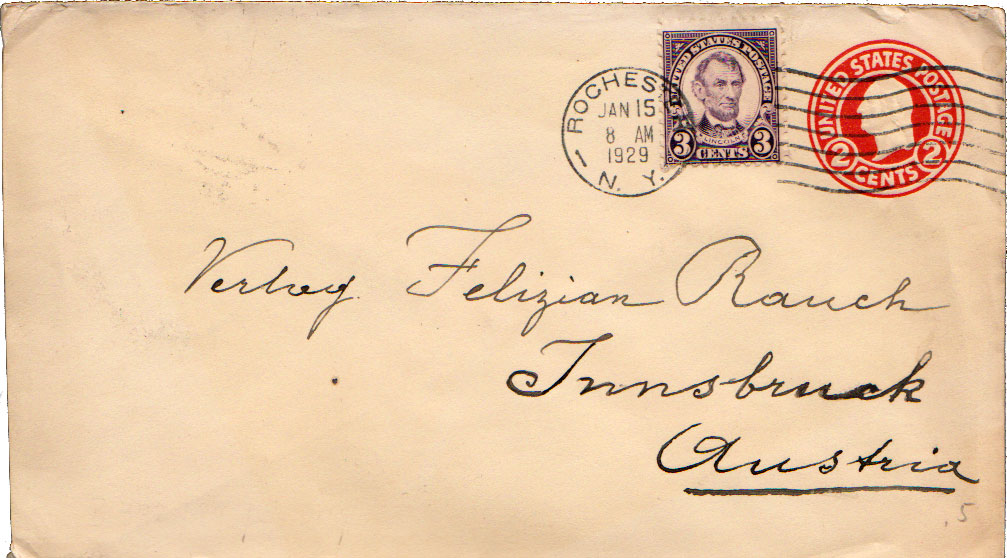 ROCHES
JAN 15
8 AM
1929
N. Y.
UNITED STATES POSTAGE
LINCOLN
3 CENTS 3
UNITED STATES POSTAGE
2 CENTS 2
Verlag Felizian Rauch
Innsbruck
Austria
.5